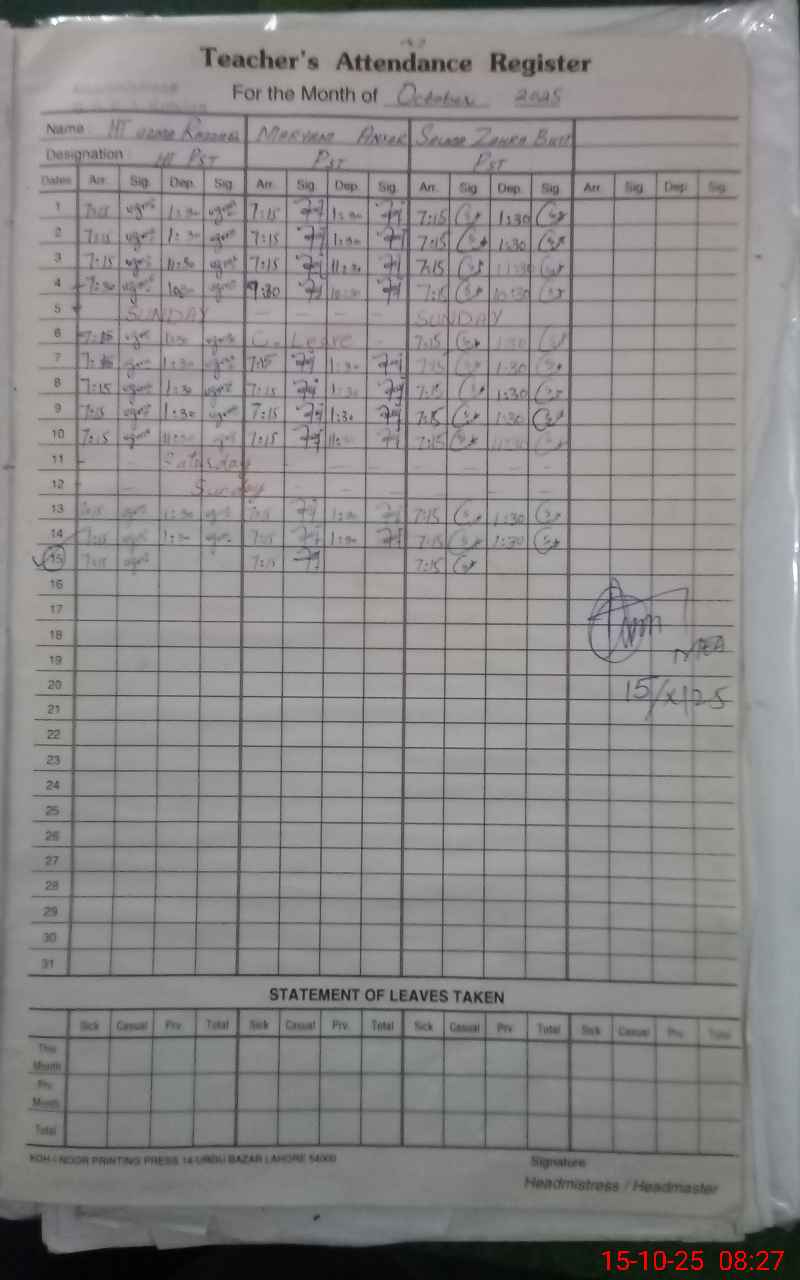 Teacher's Attendance Register
For the Month of October 2025
Name HT Uzma MARYAM SALMA ZAHRA BUTT
Designation HT PST PST PST
Dates Arr. Sig. Dep. Sig. Arr. Sig. Dep. Sig. Arr. Sig. Dep. Sig. Arr. Sig. Dep. Sig.
1 7:15 1:30 7:15 1:30 7:15 1:30
2 7:15 1:30 7:15 1:30 7:15 1:30
3 7:15 11:30 7:15 11:30 7:15 11:30
4 7:30 10:30 9:30 10:30 7:15 10:30
5 SUNDAY — — — — SUNDAY
6 7:15 1:30 C. Leave - 7:15 1:30
7 7:15 1:30 7:15 1:30 7:15 1:30
8 7:15 1:30 7:15 1:30 7:15 1:30
9 7:15 1:30 7:15 1:30 7:15 1:30
10 7:15 11:30 7:15 11:30 7:15 11:30
11 - - Saturday - - - - - -
12 - - Sunday - - - - - -
13 7:15 1:30 7:15 1:30 7:15 1:30
14 7:15 1:30 7:15 1:30 7:15 1:30
15 7:15 7:15 7:15
16
17
18
19 MEA
20 15/X/25
21
22
23
24
25
26
27
28
29
30
31
STATEMENT OF LEAVES TAKEN
Sick Casual Prv. Total Sick Casual Prv. Total Sick Casual Prv. Total Sick Casual Prv. Total
This Month
Prv. Month
Total
KOH-I-NOOR PRINTING PRESS 14-URDU BAZAR LAHORE 54000
Signature
Headmistress / Headmaster
15-10-25 08:27